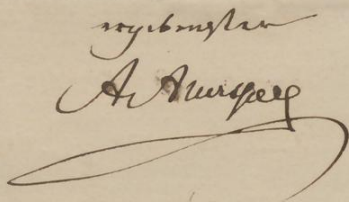 ergebenster
A Auersperg